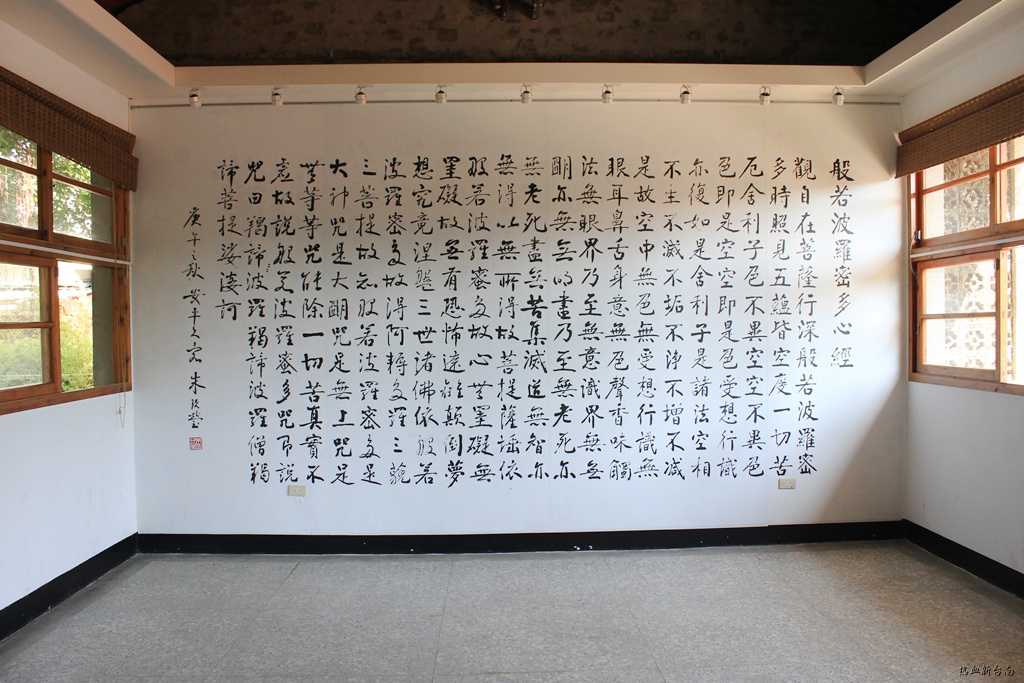 般若波羅密多心經
觀自在菩薩行深般若波羅密
多時照見五蘊皆空度一切苦
厄舍利子色不異空空不異色
色即是空空即是色受想行識
亦復如是舍利子是諸法空相
不生不滅不垢不淨不增不減
是故空中無色無受想行識無
眼耳鼻舌身意無色聲香味觸
法無眼界乃至無意識界無無
明亦無無明盡乃至無老死亦
無老死盡無苦集滅道無智亦
無得以無所得故菩提薩埵依
般若波羅蜜多故心無罣礙無
罣礙故無有恐怖遠離顛倒夢
想究竟涅槃三世諸佛依般若
波羅密多故得阿耨多羅三藐
三菩提故知般若波羅密多是
大神咒是大明咒是無上咒是
無等等咒能除一切苦真實不
虛故說般若波羅蜜多咒即說
咒曰羯諦波羅羯諦波羅僧羯
諦菩提娑婆訶
庚午之秋 安平 朱玖瑩
热血新台南